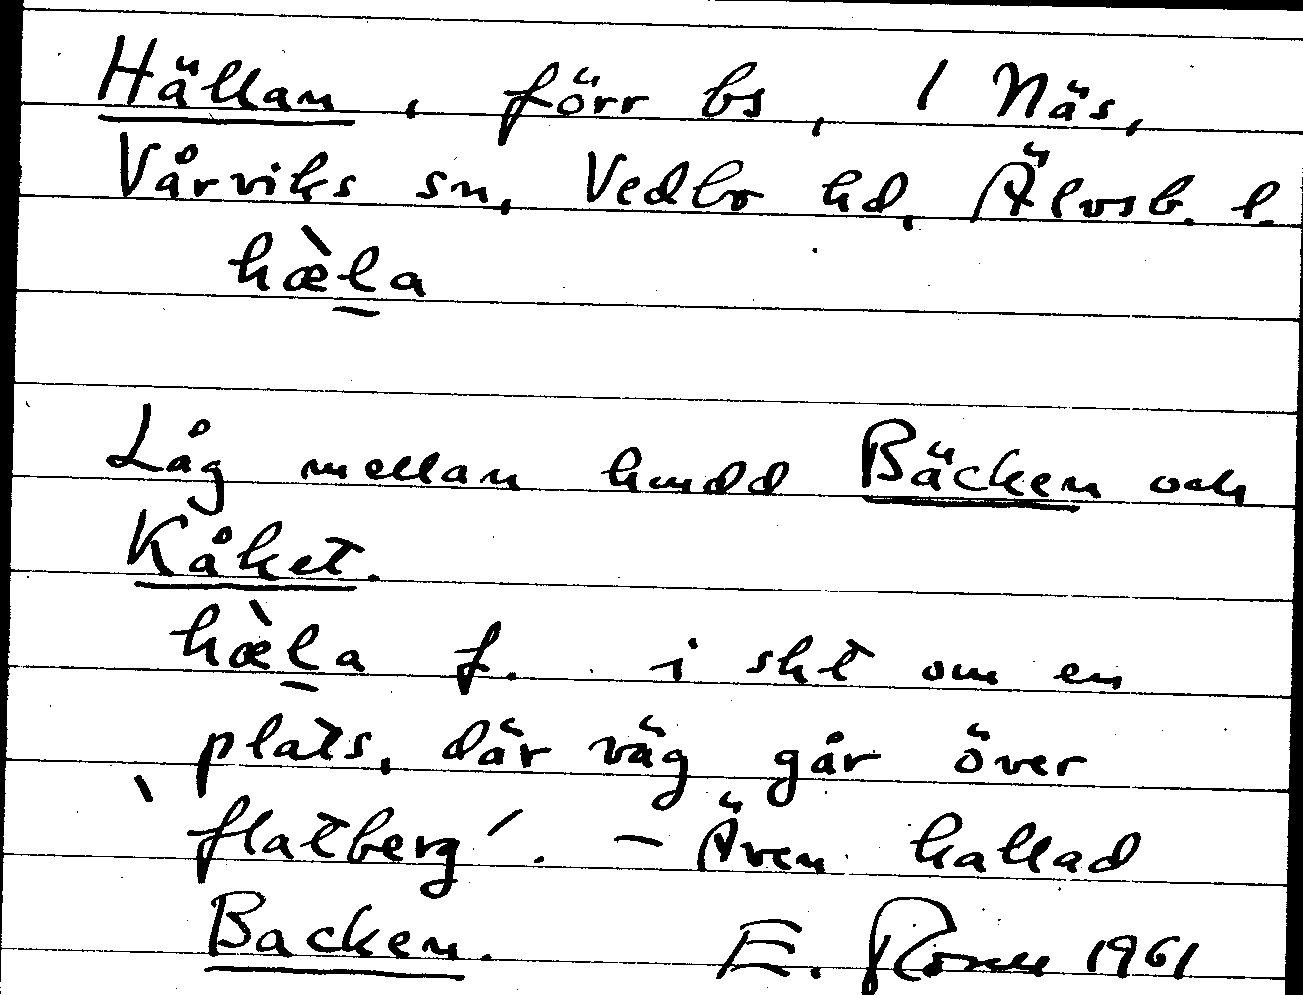 Hällan, förr bs, 1 Näs,
Vårviks sn, Vedbo hd, Älvsb. l.
hæ̀l̠a
Låg mellan hmdd Bäcken och
Kåket.
hæ̀l̠a f. i sht om en
plats, där väg går över
`flatberg´. – Även kallad
Backen. E. 1961